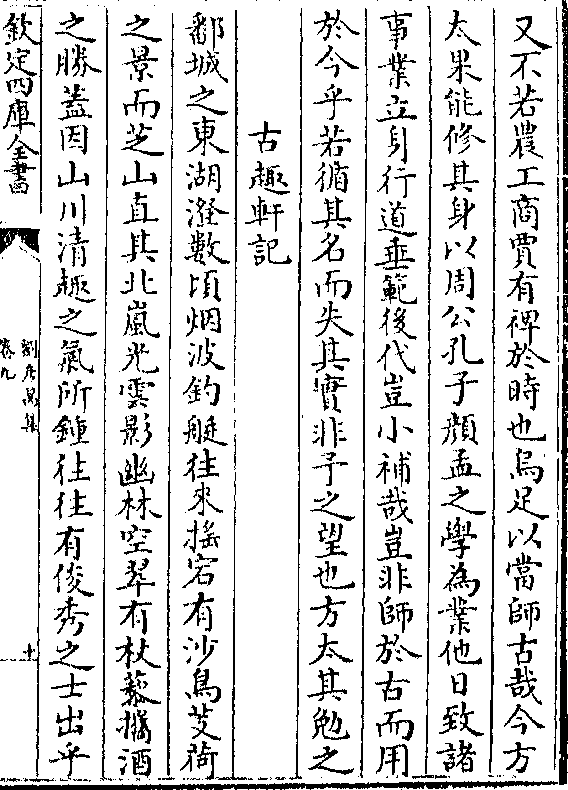 又不若農工商賈有裨於時也烏足以當師古哉今方
太果能修其身以周公孔子顔孟之學為業他日致諸
事業立身行道垂範後代豈小補哉豈非師於古而用
於今乎若循其名而失其實非予之望也方太其勉之
古趣軒記
鄱城之東湖澄數頃烟波釣艇往來揺宕有沙鳥芰荷
之景而芝山直其北嵐光雲影幽林空翠有杖藜攜酒
之勝葢因山川清趣之氣所鍾往往有俊秀之士出乎
欽定四庫全書
卷九
十